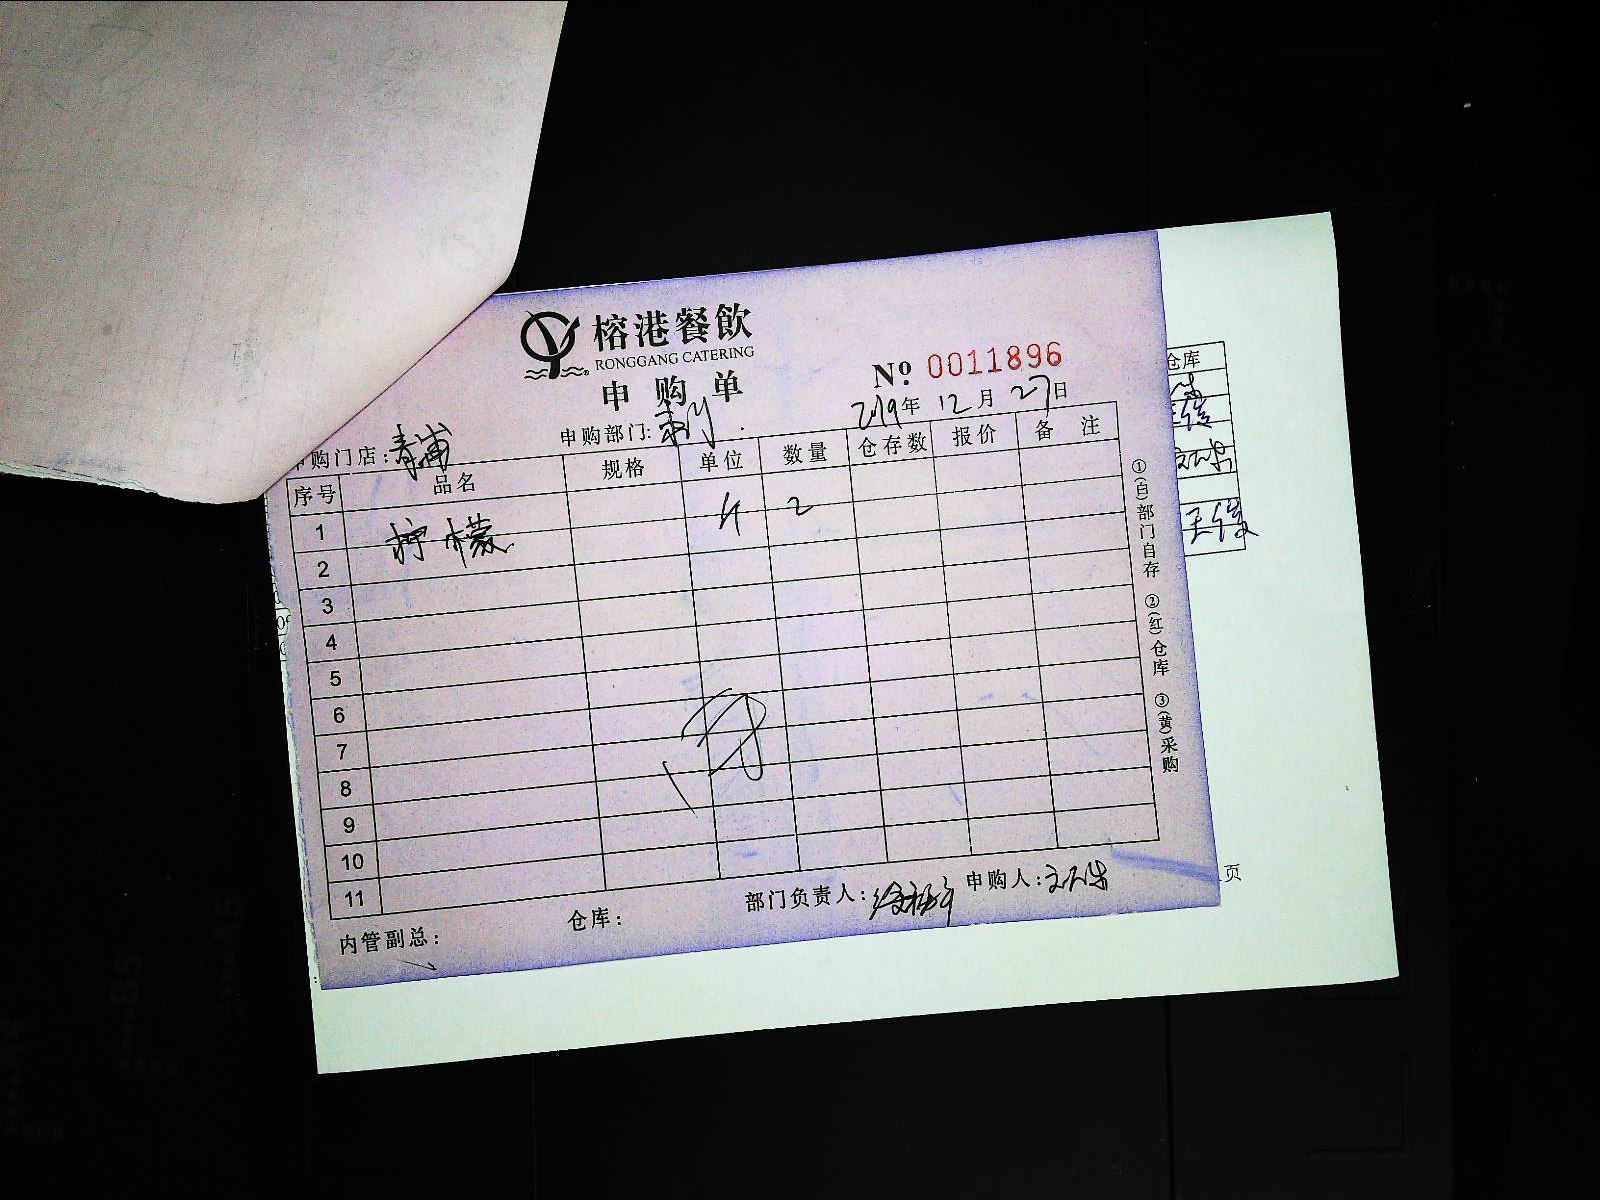 榕港餐飲
RONGGANG CATERING
申购单
№ 0011896
2019年 12月 27日
申购门店:青浦 申购部门:
序号 品名 规格 单位 数量 仓存数 报价 备注
1 柠檬 斤 2
2
3
4
5
6
7
8
9
10
11
内管副总: 仓库: 部门负责人: 申购人:
①(白)部门自存 ②(红)仓库 ③(黄)采购
仓库
页